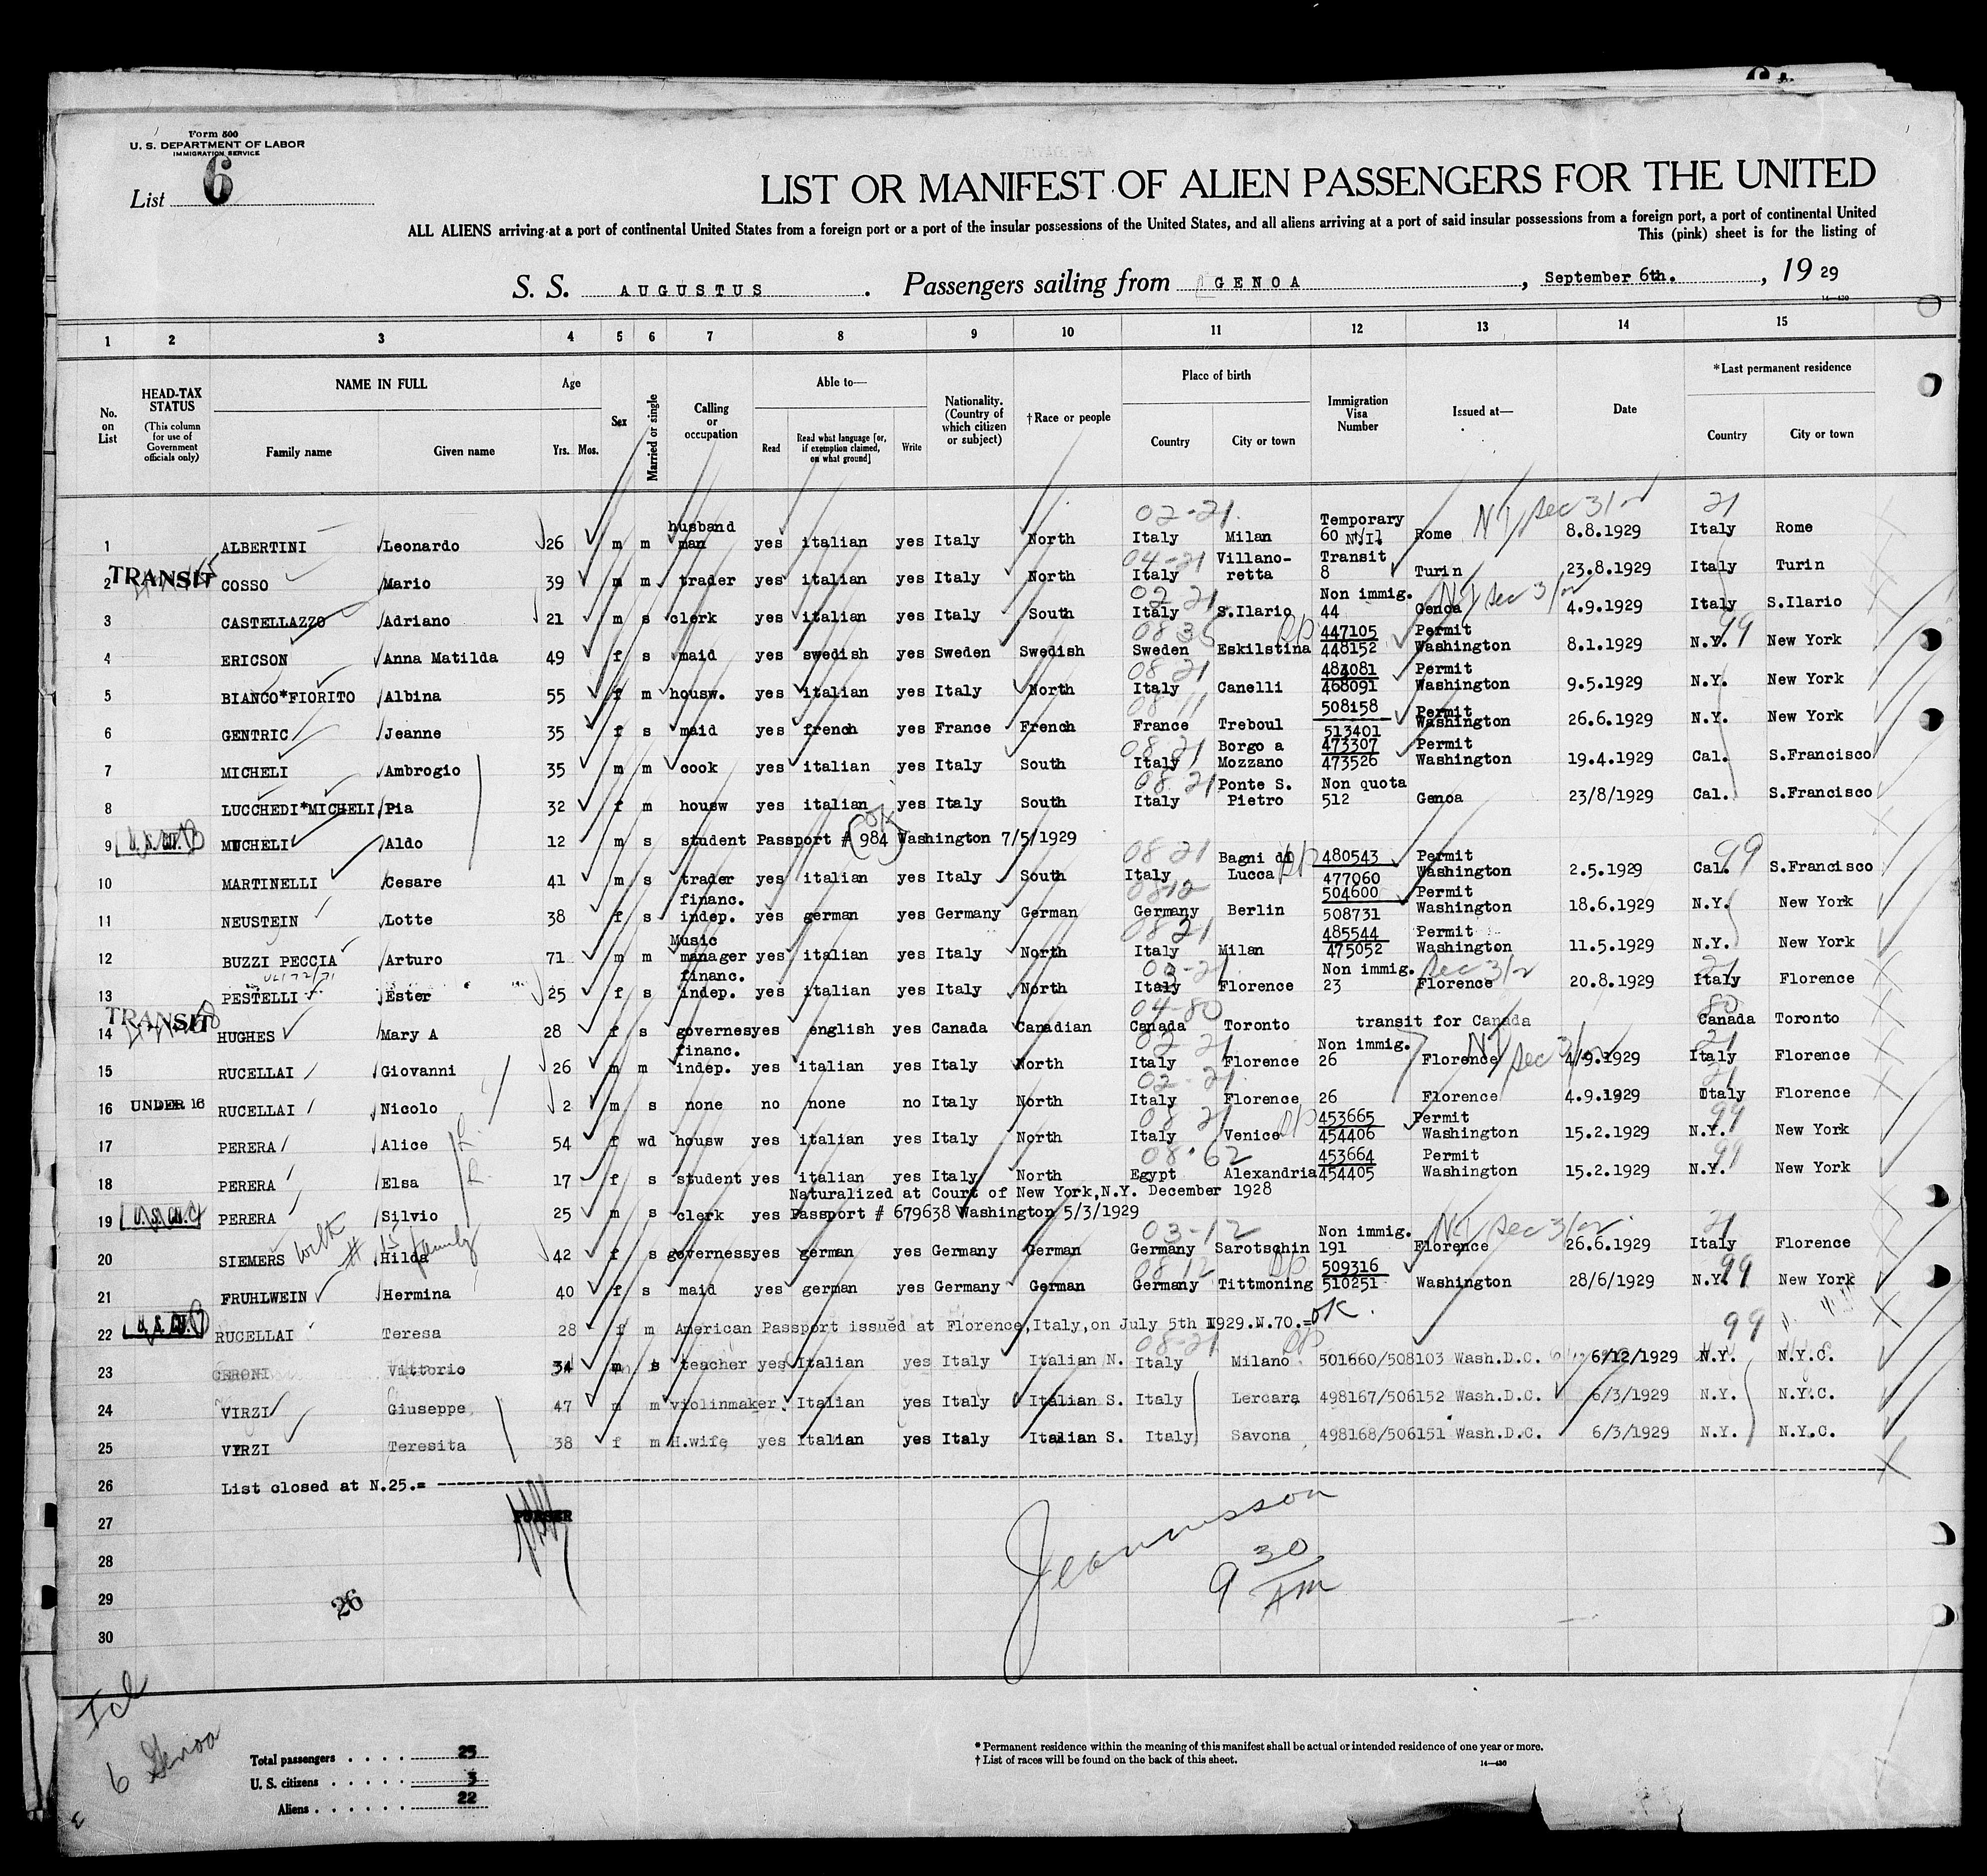 Form 500
U. S. DEPARTMENT OF LABOR
IMMIGRATION SERVICE
List 6
LIST OR MANIFEST OF ALIEN PASSENGERS FOR THE UNITED
ALL ALIENS arriving at a port of continental United States from a foreign port or a port of the insular possessions of the United States, and all aliens arriving at a port of said insular possessions from a foreign port, a port of continental United
This (pink) sheet is for the listing of
S. S. AUGUSTUS . Passengers sailing from GENOA , September 6th. , 19 29
14—430
1 2 3 4 5 6 7 8 9 10 11 12 13 14 15
No. on List
HEAD-TAX STATUS (This column for use of Government officials only)
NAME IN FULL Family name Given name
Age Yrs. Mos.
Sex
Married or single
Calling or occupation
Able to— Read Read what language [or, if exemption claimed, on what ground] Write
Nationality. (Country of which citizen or subject)
†Race or people
Place of birth Country City or town
Immigration Visa Number
Issued at—
Date
*Last permanent residence Country City or town
1 ALBERTINI Leonardo 26 m m husband man yes italian yes Italy North 02-21 Italy Milan Temporary 60 Rome NI Sec 3/2 8.8.1929 21 Italy Rome
2 TRANSIT COSSO Mario 39 m m trader yes italian yes Italy North 04-21 Italy Villano-retta Transit 8 Turin 23.8.1929 Italy Turin
3 CASTELLAZZO Adriano 21 m s clerk yes italian yes Italy South 02 21 Italy S.Ilario Non immig. 44 Genoa Sec 3/2 4.9.1929 Italy S.Ilario
4 ERICSON Anna Matilda 49 f s maid yes swedish yes Sweden Swedish 08 35 Sweden Eskilstina 447105 448152 Permit Washington 8.1.1929 99 N.Y. New York
5 BIANCO*FIORITO Albina 55 f m housw. yes italian yes Italy North 08 21 Italy Canelli 484081 468091 Permit Washington 9.5.1929 N.Y. New York
6 GENTRIC Jeanne 35 f s maid yes french yes France French 08-11 France Treboul 508158 513401 Permit Washington 26.6.1929 N.Y. New York
7 MICHELI Ambrogio 35 m m cook yes italian yes Italy South 08-21 Italy Borgo a Mozzano 473307 473526 Permit Washington 19.4.1929 Cal. S.Francisco
8 LUCCHEDI*MICHELI Pia 32 f m housw yes italian yes Italy South 08 21 Italy Ponte S. Pietro Non quota 512 Genoa 23/8/1929 Cal. S.Francisco
9 U. S. CIT. MUCHELI Aldo 12 m s student Passport # (984) OK Washington 7/5/1929
10 MARTINELLI Cesare 41 m s trader yes italian yes Italy South 08 21 Italy Bagni di Lucca 480543 477060 Permit Washington 2.5.1929 99 Cal. S.Francisco
11 NEUSTEIN Lotte 38 f s financ. indep. yes german yes Germany German 08-12 Germany Berlin 504600 508731 Permit Washington 18.6.1929 N.Y. New York
12 BUZZI PECCIA Arturo 71 m m Music manager yes italian yes Italy North 08 21 Italy Milan 485544 475052 Permit Washington 11.5.1929 N.Y. New York
13 PESTELLI Ester 25 f s financ. indep. yes italian yes Italy North 02-21 Italy Florence Non immig. 23 Florence Sec 3/2 20.8.1929 21 Italy Florence
14 TRANSIT HUGHES Mary A 28 f s governes yes english yes Canada Canadian 04-80 Canada Toronto transit for Canada 80 Canada Toronto
15 RUCELLAI Giovanni 26 m m financ. indep. yes italian yes Italy North 02-21 Italy Florence Non immig. 26 Florence Sec 3/2 4/9.1929 21 Italy Florence
16 UNDER 16 RUCELLAI Nicolo 2 m s none no none no Italy North 02-21 Italy Florence 26 Florence 4.9.1929 21 Italy Florence
17 PERERA Alice 54 f wd housw yes italian yes Italy North 08 21 Italy Venice 453665 454406 Permit Washington 15.2.1929 99 N.Y. New York
18 PERERA Elsa 17 f s student yes italian yes Italy North 08-62 Egypt Alexandria 453664 454405 Permit Washington 15.2.1929 99 N.Y. New York
Naturalized at Court of New York,N.Y. December 1928
19 U. S. CIT. PERERA Silvio 25 m s clerk yes Passport # 679638 Washington 5/3/1929
20 SIEMERS with # 15 family Hilda 42 f s governess yes german yes Germany German 03-12 Germany Sarotschin Non immig. 191 Florence Sec 3/2 26.6.1929 21 Italy Florence
21 FRUHLWEIN Hermina 40 f s maid yes german yes Germany German 08 12 Germany Tittmoning 509316 510251 Washington 28/6/1929 99 N.Y. New York
22 U. S. CIT. RUCELLAI Teresa 28 f m American Passport issued at Florence,Italy,on July 5th 1929.N.70.= OK
23 CERONI Vittorio 34 m s teacher yes Italian yes Italy Italian N. 08-21 Italy Milano 501660/508103 Wash.D.C. 6/12/1929 99 N.Y. N.Y.C.
24 VIRZI Giuseppe 47 m m violinmaker. Italian yes Italy Italian S. Italy Lercara 498167/506152 Wash.D.C. 6/3/1929 N.Y. N.Y.C.
25 VIRZI Teresita 38 f m H.wife yes Italian yes Italy Italian S. Italy Savona 498168/506151 Wash.D.C. 6/3/1929 N.Y. N.Y.C.
26 List closed at N.25.=
27 PURSER
28
29
30
26
Jeannesson
9 30 AM
6 Genoa
Total passengers . . . . 25
U. S. citizens . . . . . 3
Aliens . . . . . . 22
* Permanent residence within the meaning of this manifest shall be actual or intended residence of one year or more.
† List of races will be found on the back of this sheet.
14—430